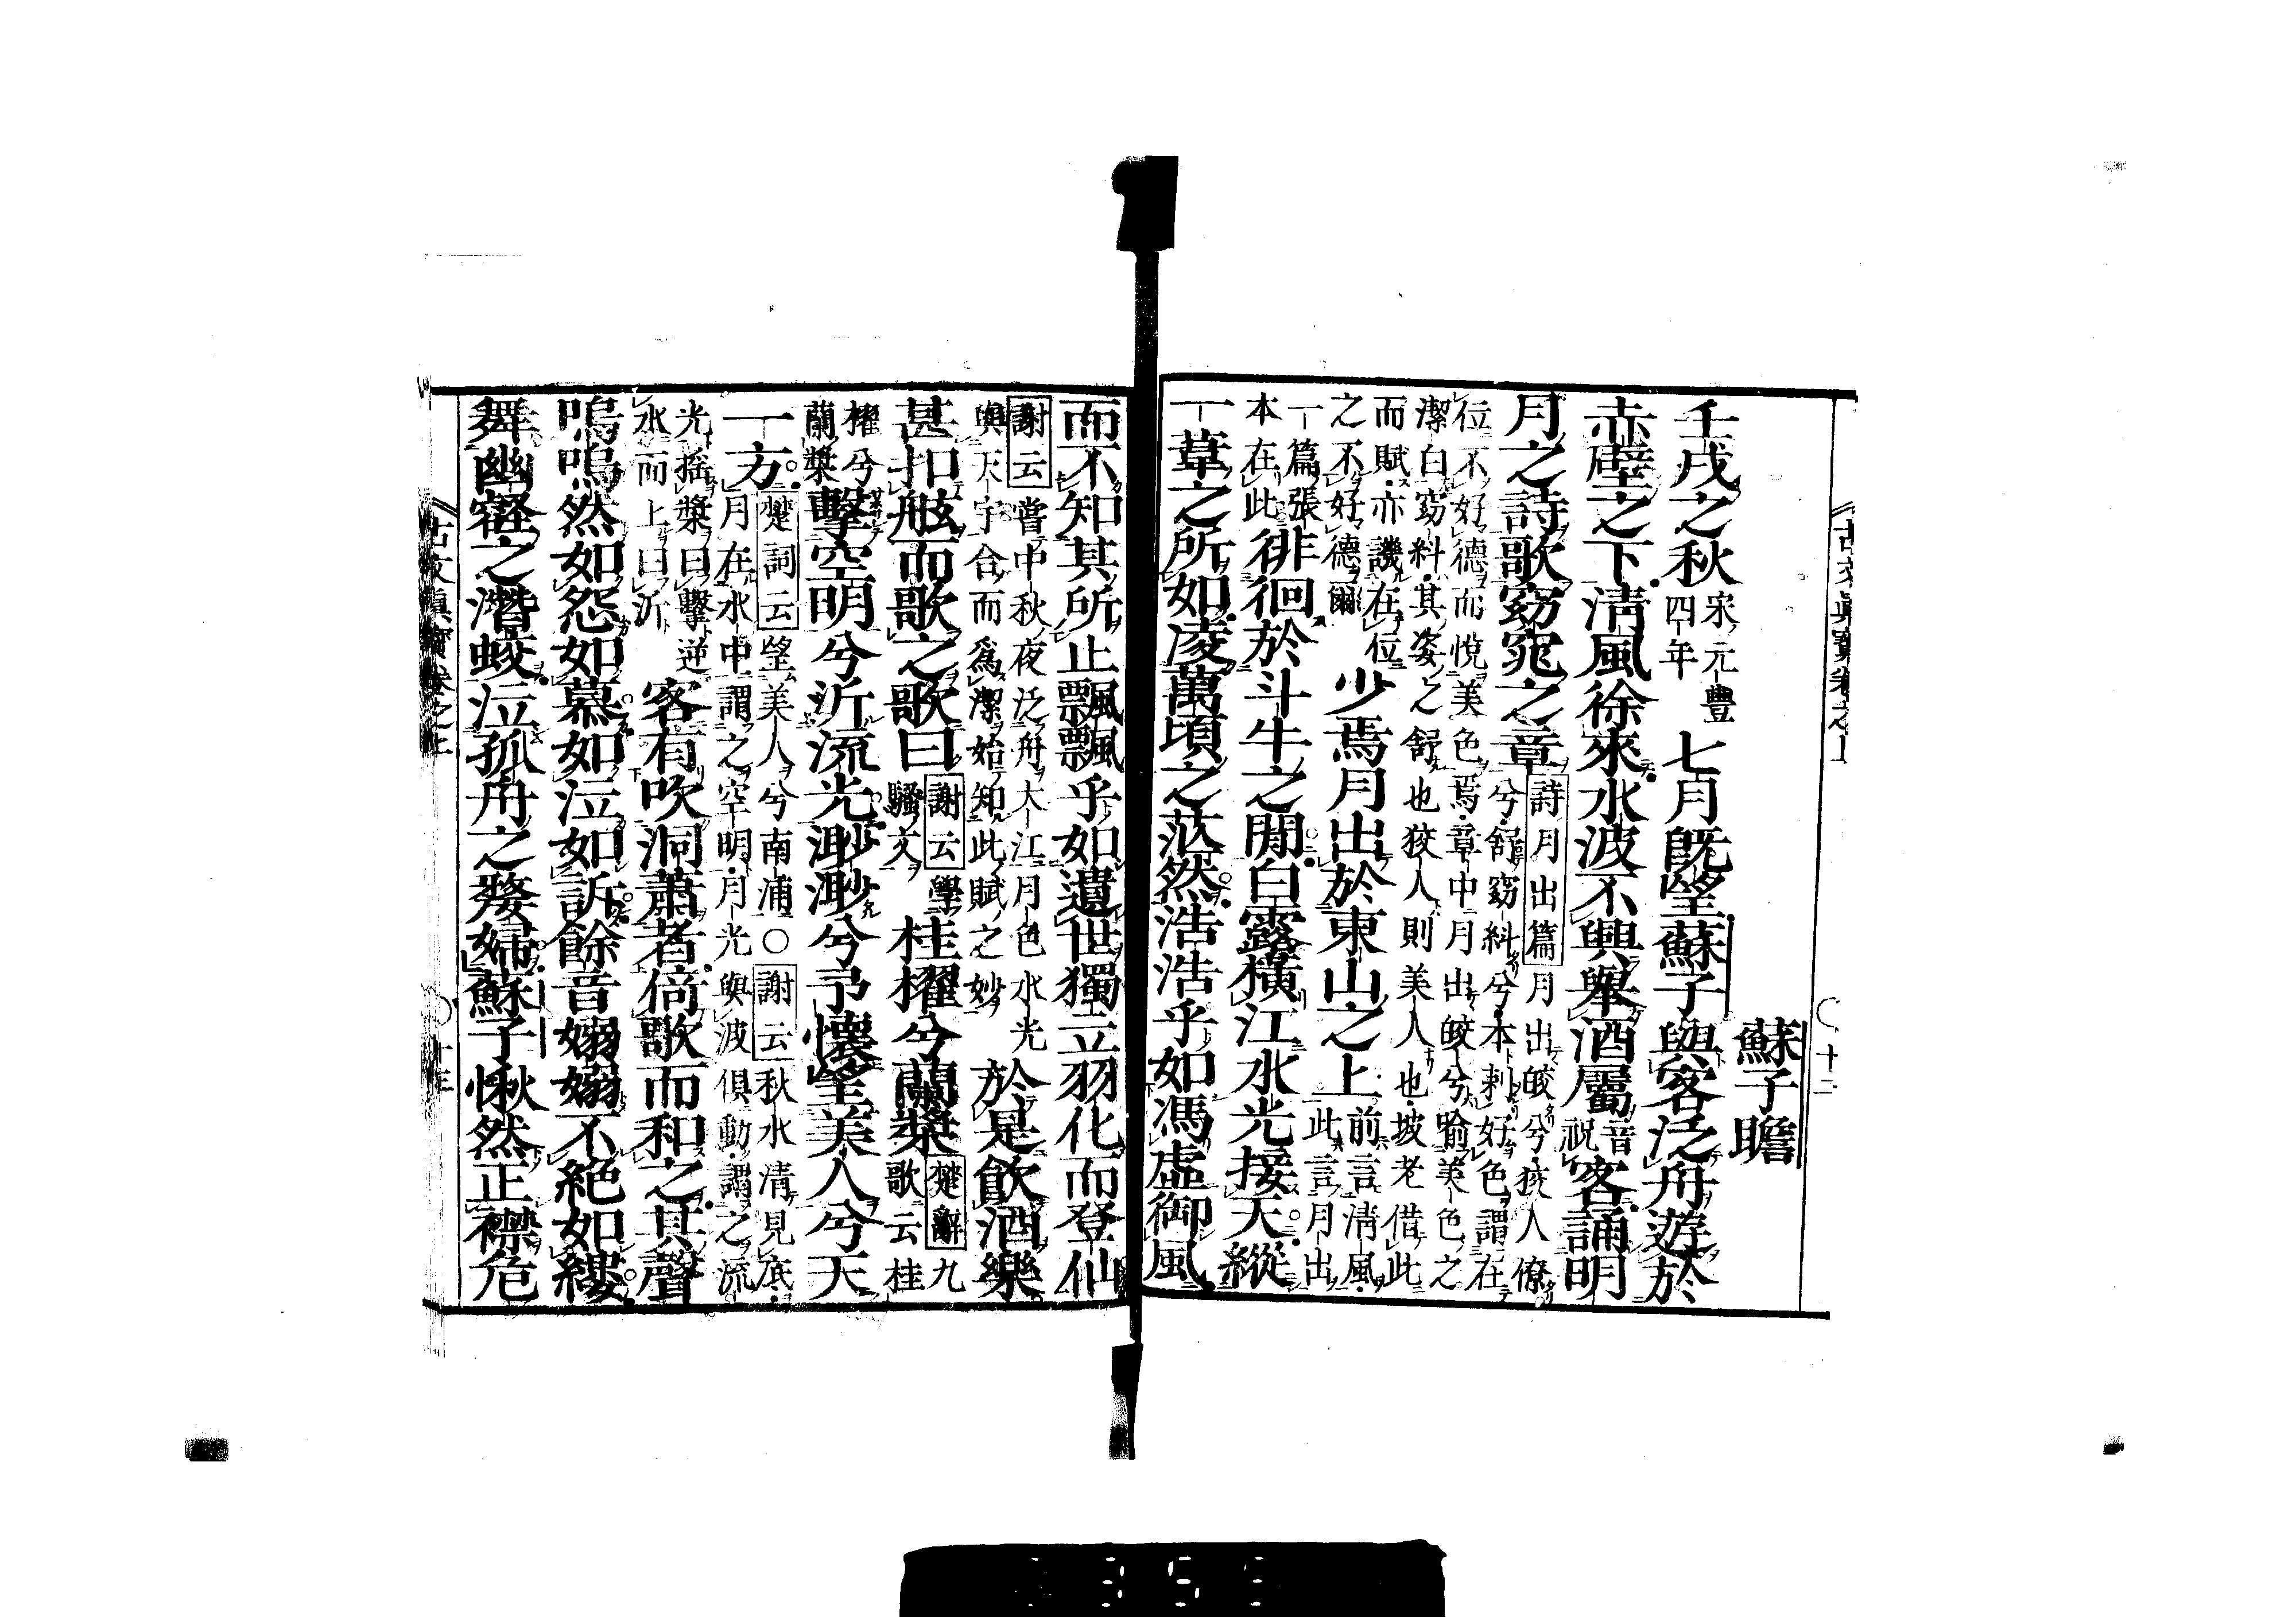 古文眞寳卷之上
十二
蘇子瞻
壬戌之秋宋元豐四年七月旣望蘇子與客泛舟遊於
赤壁之下淸風徐來水波不興舉酒屬音祝客誦明
月之詩歌窈窕之章詩月出篇月出皎兮狡人僚
兮舒窈糾兮本刺好色謂在
位不好德而悅美色焉章中月出皎兮喻美色之
潔白窈糾其姿之舒也狡人則美人也坡老借此
而賦亦譏在位
之不好德爾少焉月出於東山之上前言淸風
此言月出
一篇張
本在此徘徊於斗牛之閒白露橫江水光接天縱
一葦之所如凌萬頃之茫然浩浩乎如馮虛御風
而不知其所止飄飄乎如遺世獨立羽化而登仙
謝云嘗中秋夜泛舟大江月色水光
與天宇合而爲潔始知此賦之妙於是飮酒樂
甚扣舷而歌之歌曰謝云學
騷文桂櫂兮蘭槳楚辭九
歌云桂
櫂兮
蘭槳擊空明兮泝流光渺渺兮予懷望美人兮天
一方楚詞云望美人兮南浦○謝云秋水淸見底
月在水中謂之空明月光與波俱動謂之流
光搖槳曰擊逆
水而上曰泝客有吹洞蕭者倚歌而和之其聲
嗚嗚然如怨如慕如泣如訴餘音嫋嫋不絕如縷
舞幽壑之潛蛟泣孤舟之嫠婦蘇子愀然正襟危
古文眞寳卷之上
十三